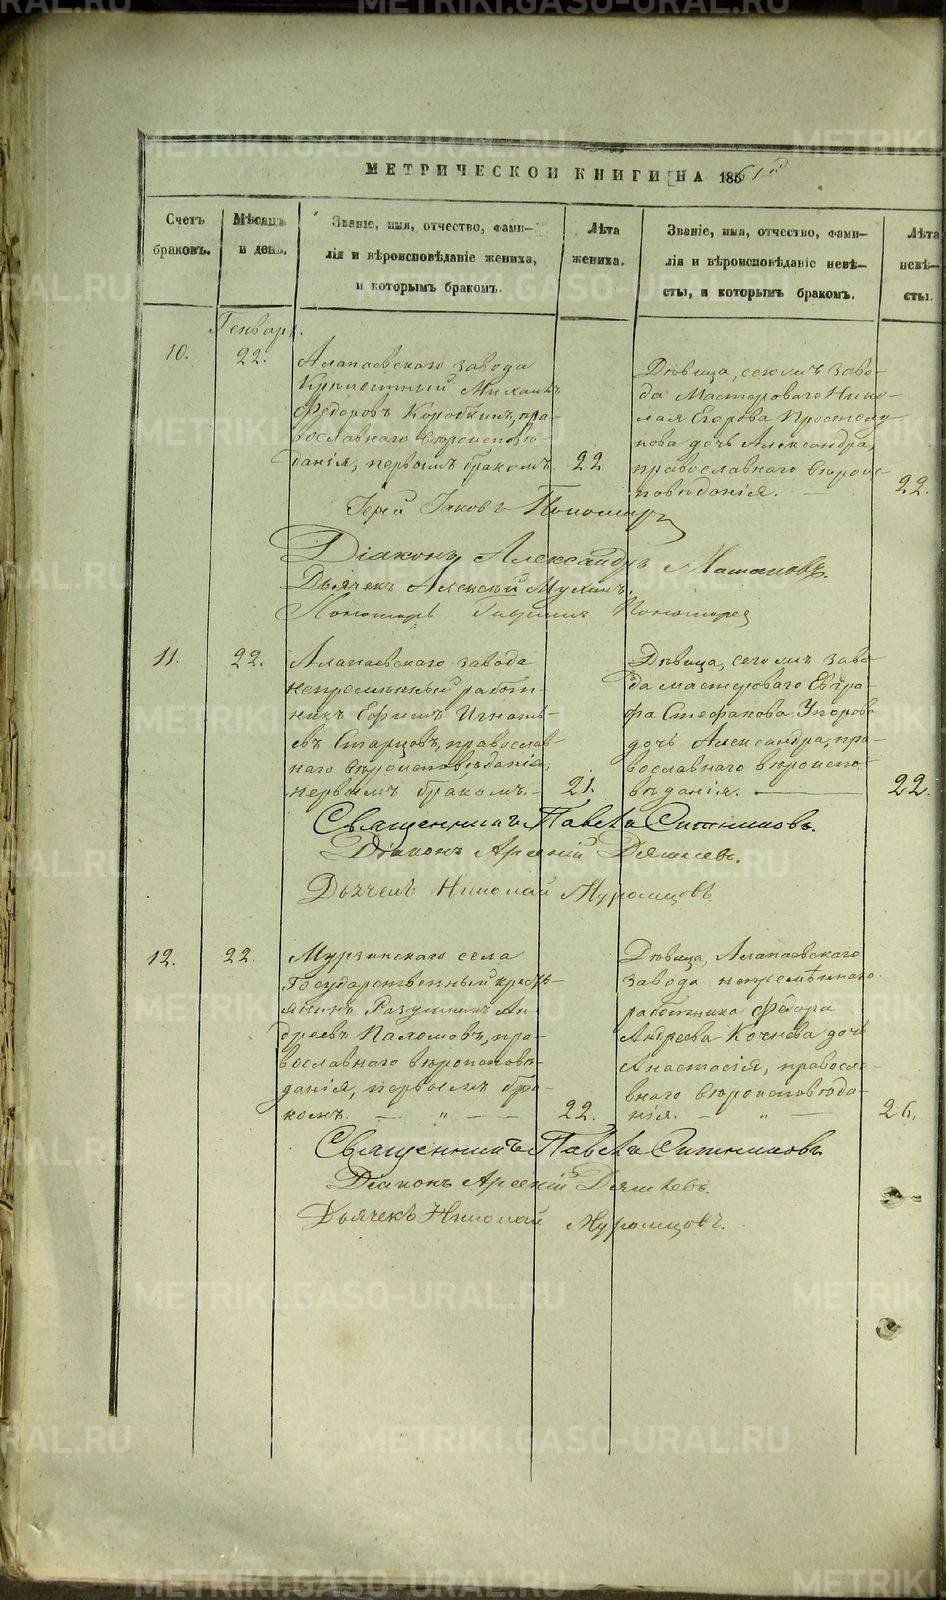 МЕТРИЧЕСКОЙ КНИГИ НА 1861й
Счетъ браковъ.
Мѣсяцъ и день.
Званіе, имя, отчество, фами-
лія и вѣроисповѣданіе жениха,
и которымъ бракомъ.
Лѣта жениха.
Званіе, имя, отчество, фами-
лія и вѣроисповѣданіе невѣ-
сты, и которымъ бракомъ.
Лѣта невѣ-
сты.
Генваря.
10.
22.
Алапаевскаго завода
Крѣпостный Михаилъ
Ѳедоровъ Коробкинъ, пра-
вославнаго вѣроисповѣ-
данія, первымъ бракомъ.
22
Дѣвица, сегожъ заво-
да Мастероваго Нико-
лая Егорова
дочь Александра,
православнаго вѣроис-
повѣданія. —
22.
Іерей Іаковъ Пономаревъ
Діаконъ Александръ
Дьячекъ Алексѣй Мухинъ.
Пономарь Гавріилъ Пономарев
11.
22.
Алапаевскаго завода
непремѣнный работ-
никъ Ефимъ Игнать-
евъ Старцовъ, православ-
наго вѣроисповѣданія,
первымъ бракомъ. —
21.
Дѣвица, сегожъ заво-
да мастероваго Евгра-
фа Стефанова Упорова
дочь Александра, пра-
вославнаго вѣроиспо-
вѣданія. —
22.
Священникъ Павелъ Ситниковъ.
Діаконъ Арсеній
Дьячекъ Николай Муромцовъ.
12.
22.
Мурзинскаго села
Государственный кресть-
янинъ Ан-
дреевъ Паломовъ, пра-
вославнаго вѣроисповѣ-
данія, первымъ бра-
комъ. — „ — —
22.
Дѣвица, Алапаевскаго
завода непремѣннаго
работника Ѳедора
Андреева Кочнева дочь
Анастасія, правосла-
внаго вѣроисповѣда-
нія. — „ —
26.
Священникъ Павелъ Ситниковъ
Діаконъ Арсеній
Дьячекъ Николай Муромцовъ.
METRIKI.GASO-URAL.RU